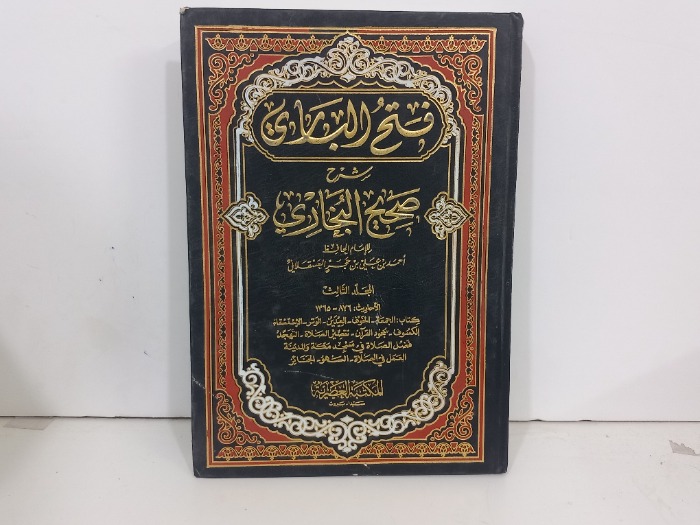 فتح الباري
شرح
صحيح البخاري
للإمام الحافظ
أحمد بن علي بن حجر العسقلاني
المجلد الثالث
الأحاديث: ٨٧٦ - ١٣٦٥
كتاب: الجمعة - الخوف - العيدين - الوتر - الاستسقاء
الكسوف - سجود القرآن - تقصير الصلاة - التهجد
فضل الصلاة في مسجد مكة والمدينة
العمل في الصلاة - السهو - الجنائز
المكتبة العصرية
صيدا - بيروت